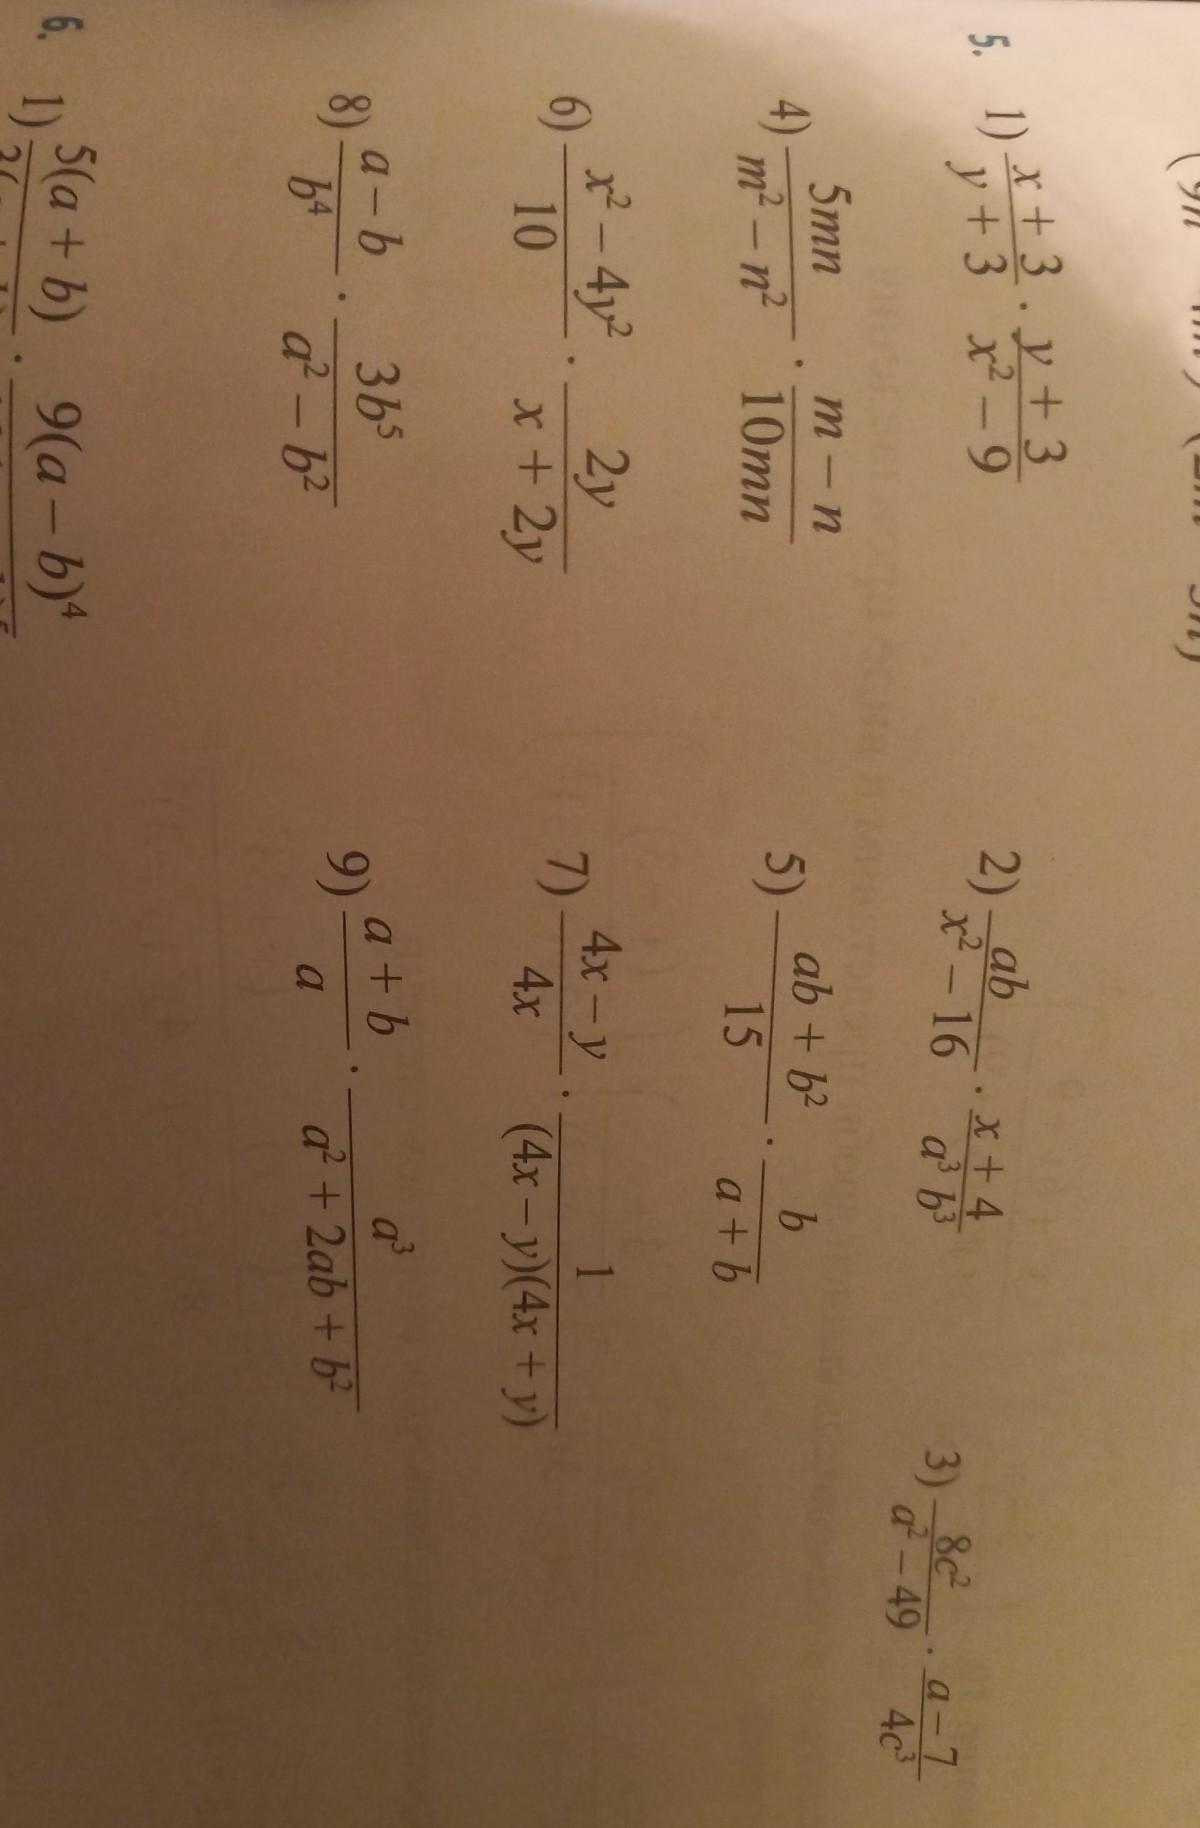 5. 1) (x + 3)/(y + 3) · (y + 3)/(x² − 9) 2) ab/(x² − 16) · (x + 4)/(a³b³) 3) 8c²/(a² − 49) · (a − 7)/(4c³)
4) 5mn/(m² − n²) · (m − n)/(10mn) 5) (ab + b²)/15 · b/(a + b)
6) (x² − 4y²)/10 · 2y/(x + 2y) 7) (4x − y)/(4x) · 1/((4x − y)(4x + y))
8) (a − b)/b⁴ · 3b⁵/(a² − b²) 9) (a + b)/a · a³/(a² + 2ab + b²)
6. 1) 5(a + b) · 9(a − b)⁴